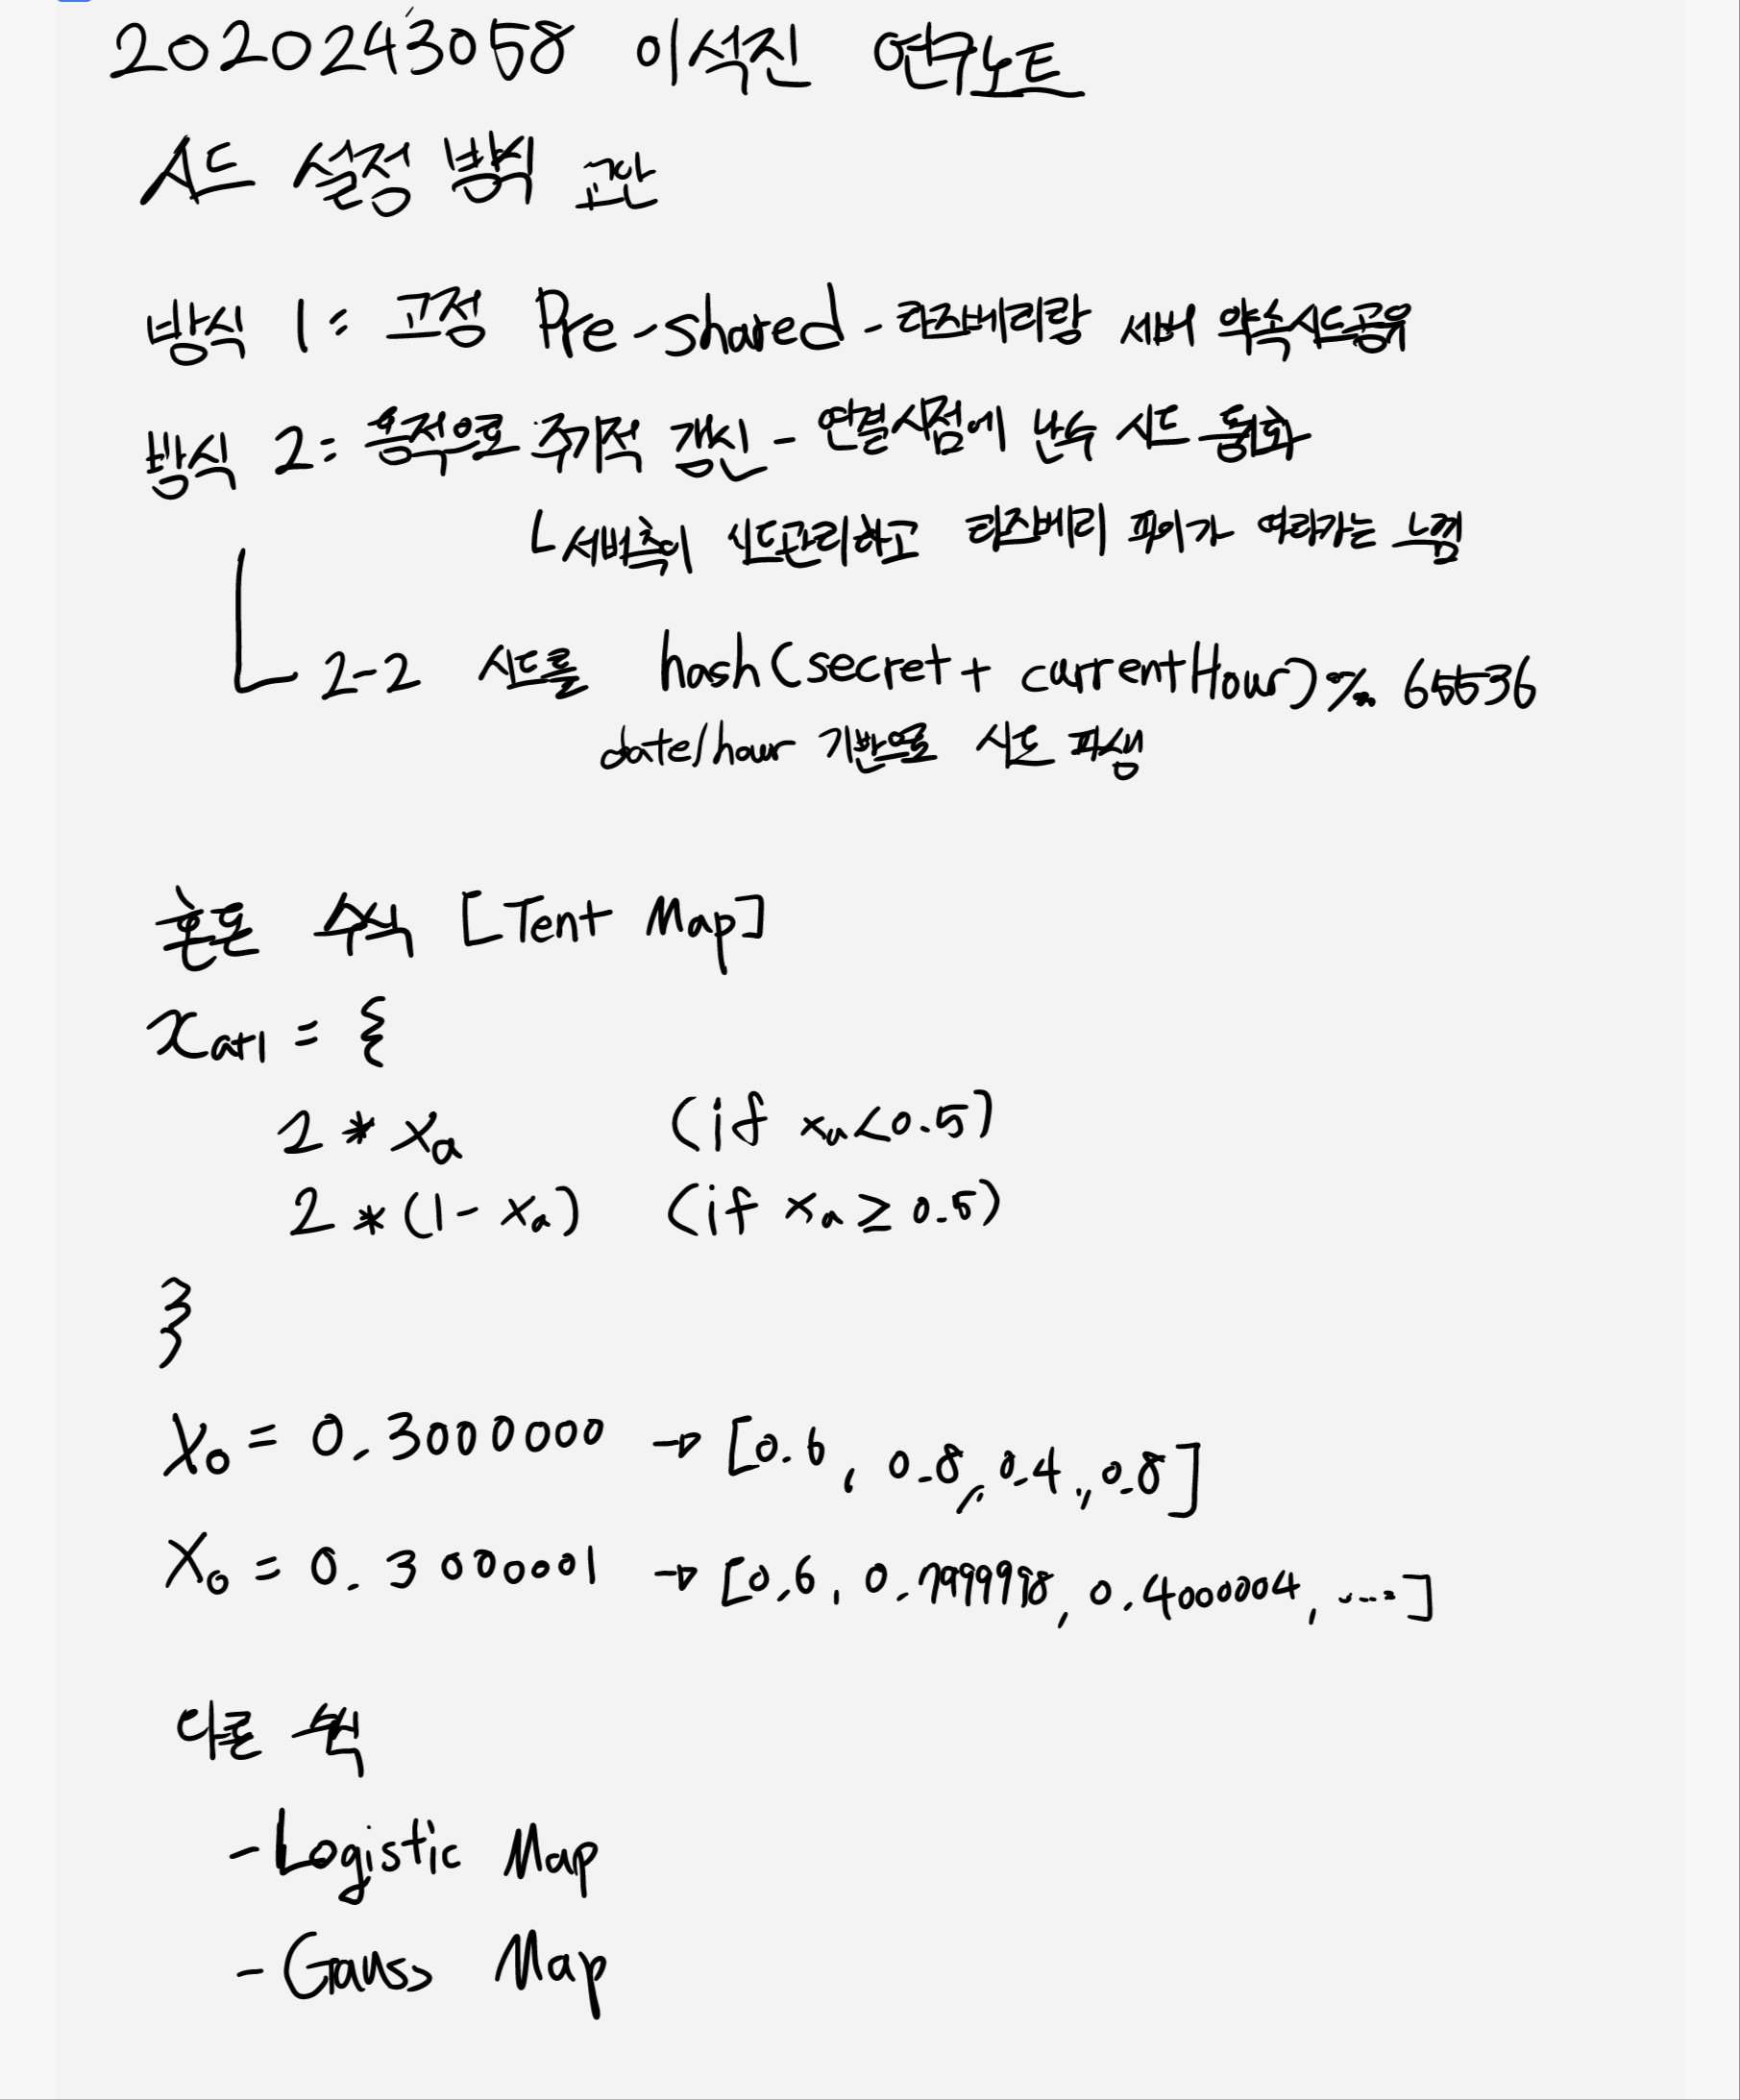 2020243058 이석진 연구노트
시드 설정 방식 고안
방식 1: 고정 Pre-shared - 라즈베리랑 서버 약속시드공유
방식 2: 동적으로 주기적 갱신 - 연결시점에 난수 시드 동기화
ㄴ서버측이 시드관리하고 라즈베리 파이가 따라가는 느낌
ㄴ 2-2 시드를 hash(secret + currentHour) % 65536
date/hour 기반으로 시드 파생
혼돈 수식 [Tent Map]
xa+1 = {
2 * xa (if xa<0.5)
2 * (1 - xa) (if xa ≥ 0.5)
}
X0 = 0.3000000 → [0.6, 0.8, 0.4, 0.8]
X0 = 0.3000001 → [0.6, 0.7999998, 0.4000004, ....]
다른 수식
- Logistic Map
- Gauss Map